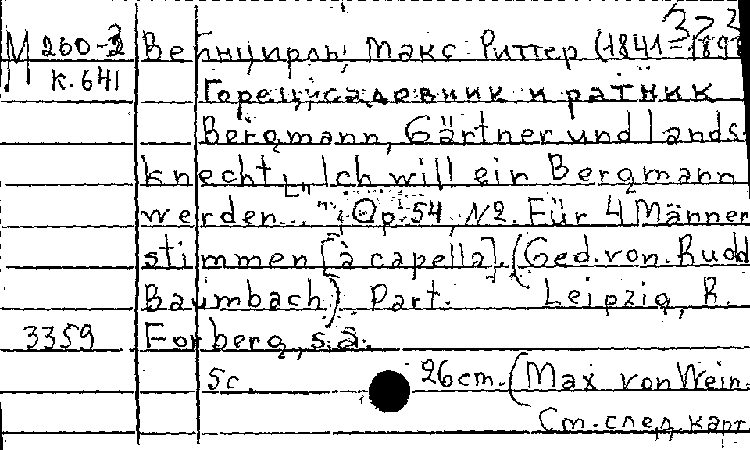 323
М 260-3 Вейнцирль, Макс Риттер (1841-189
к.641
Горец, садовник и ратник
Bergmann, Gärtner und Lands-
knecht [„Ich will ein Bergmann
werden..."], Op. 54, N2. Für 4 Männer
stimmen [à capella]. (Ged. von Rudo
Baumbach). Part. Leipzig, R.
3359 Forberg, s.a.
5с. 26cm. (Max von Wein-
См. след. карт.